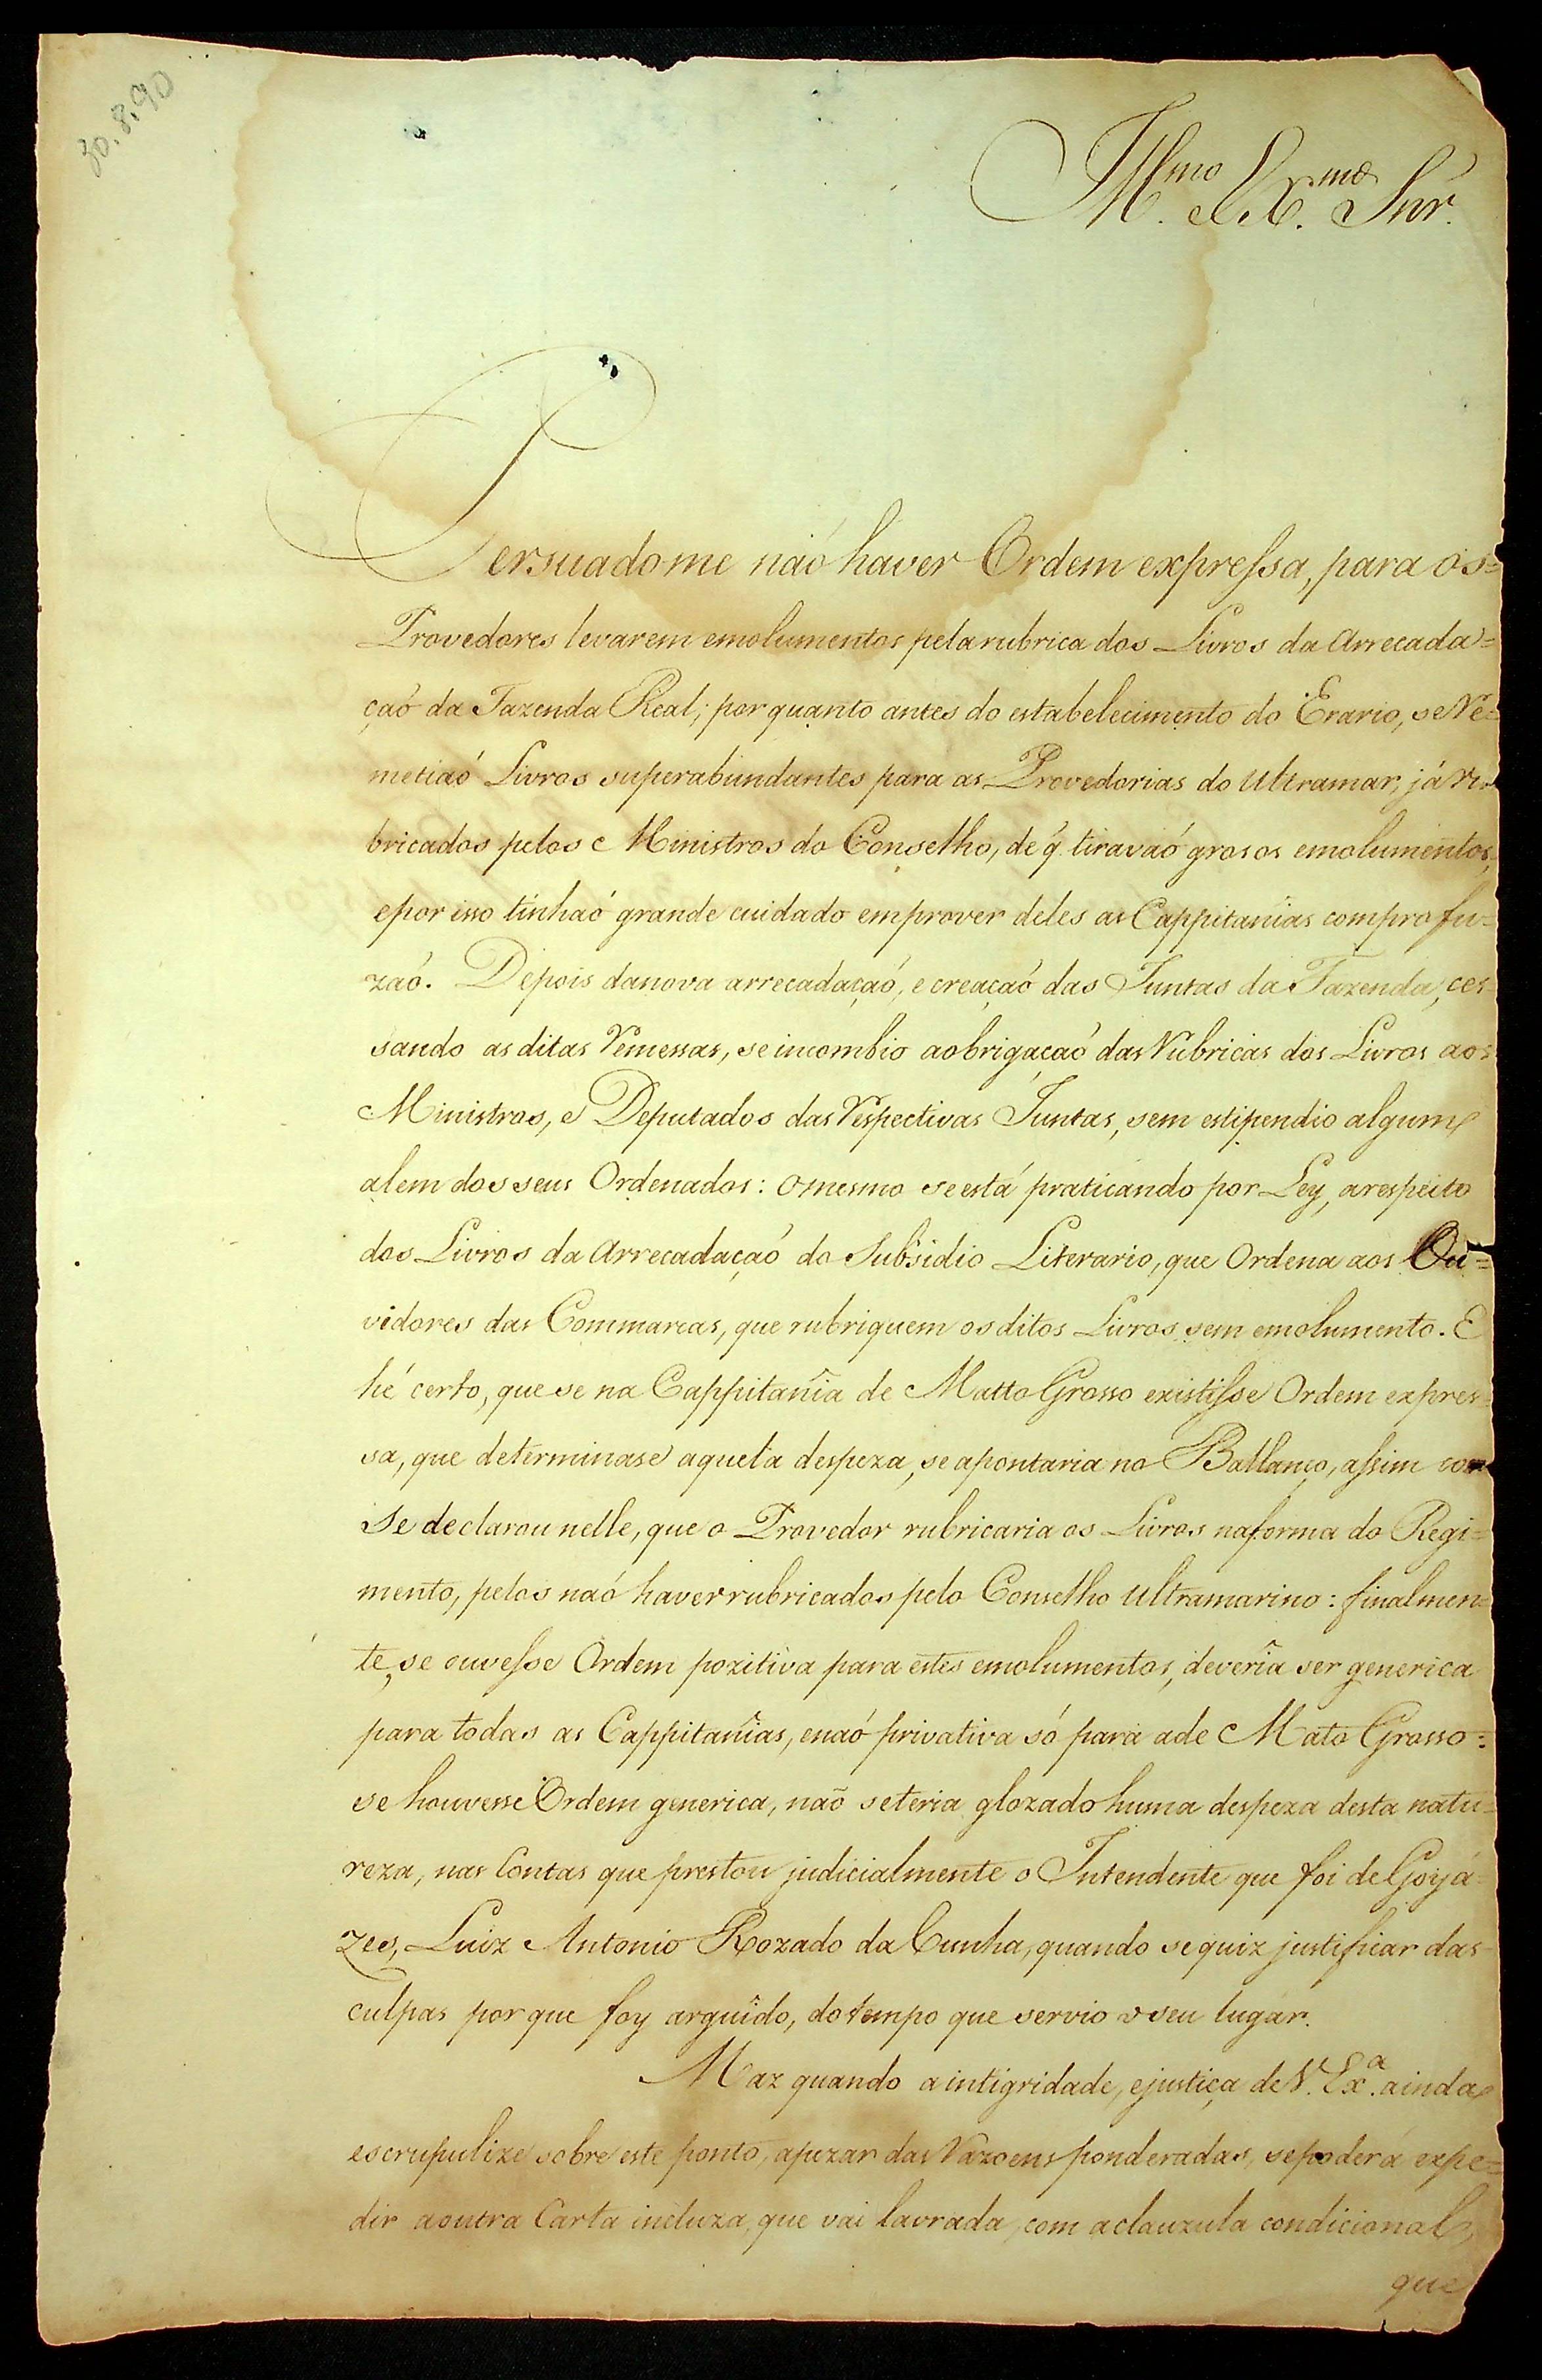 30.8.90
Ill.mo e Ex.mo Snr.
Persuadome naó haver Ordem expressa, para os=
Provedores levarem emolumentos pela rubrica dos Livros da Arrecada=
çaó da Fazenda Real; por quanto antes do estabelecimento do Erario, se Re=
metiaó Livros superabundantes para as Provedorias do Ultramar, já ru=
bricados pelos Ministros do Conselho, de q̃ tiravaó grosos emolumentos,
e por isso tinhaó grande cuidado em prover deles as Cappitanîas com profu=
zaó. Depois da nova arrecadaçaó, e creaçaó das Juntas da Fazenda, ces=
sando as ditas Remessas, se incombio a obrigaçaó das Rubricas dos Livros aos
Ministros, e Deputados das Respectivas Juntas, sem estipendio algum
alem dos seus Ordenados: o mesmo se está praticando por Ley, a respeito
dos Livros da Arrecadaçaó do Subsidio Literario, que Ordena aos Ou=
vidores das Commarcas, que rubriquem os ditos Livros sem emolumento. E
hé certo, que se na Cappitanîa de Matto Grosso existisse Ordem expres=
sa, que determinase aquela despeza, se apontaria no Ballanço, assim com
se declarou nelle, que o Provedor rubricaria os Livros na forma do Regi=
mento, pelos naó haver rubricados pelo Conselho Ultramarino: finalmen=
te, se ouvesse Ordem pozitiva para estes emolumentos, deverîa ser generica
para todas as Cappitanîas, e naó privativa só para a de Mato Grosso:
se houvesse Ordem generica, naõ se teria glozado huma despeza desta natu=
reza, nas Contas que prestou judicialmente o Intendente que foi de Goyá=
zes, Luiz Antonio Rozado da Cunha, quando se quiz justificar das
culpas por que foy arguîdo, do tempo que servio o seu lugar.
Maz quando a intigridade, e justiça de V. Ex.a ainda
escrupulize sobre este ponto, apezar das Razoens ponderadas, se poderá expe=
dir a outra Carta incluza, que vai lavrada, com a clauzula condicional,
que